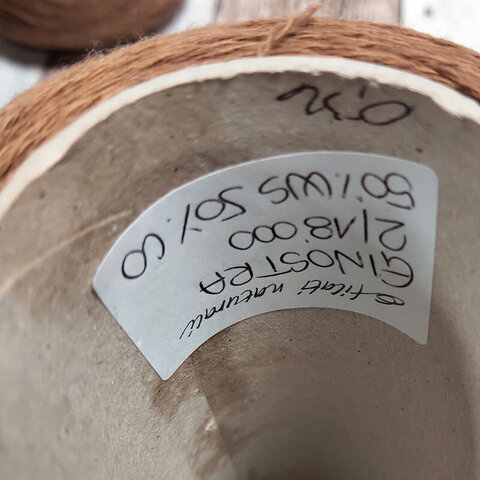 filati naturali
GINOSTRA
2/18.000
50% WS 50% CO